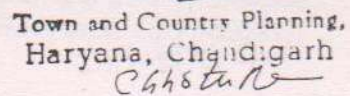 Town and Country Planning,
Haryana, Chandigarh